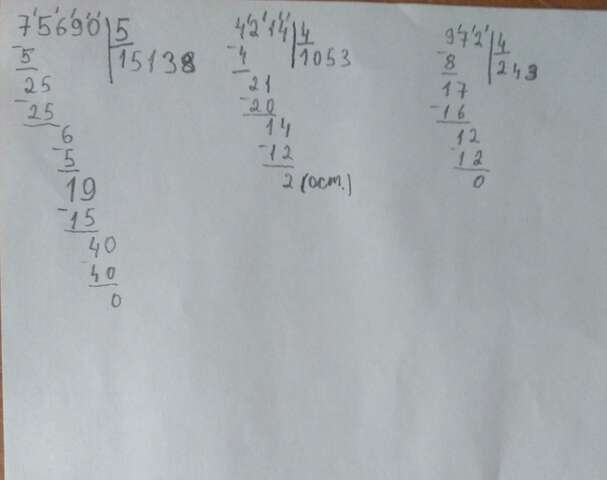 75690 5
-5 15138
25
-25
6
-5
19
-15
40
-40
0
4214 4
-4 1053
21
-20
14
-12
2 (ост.)
972 4
-8 243
17
-16
12
-12
0